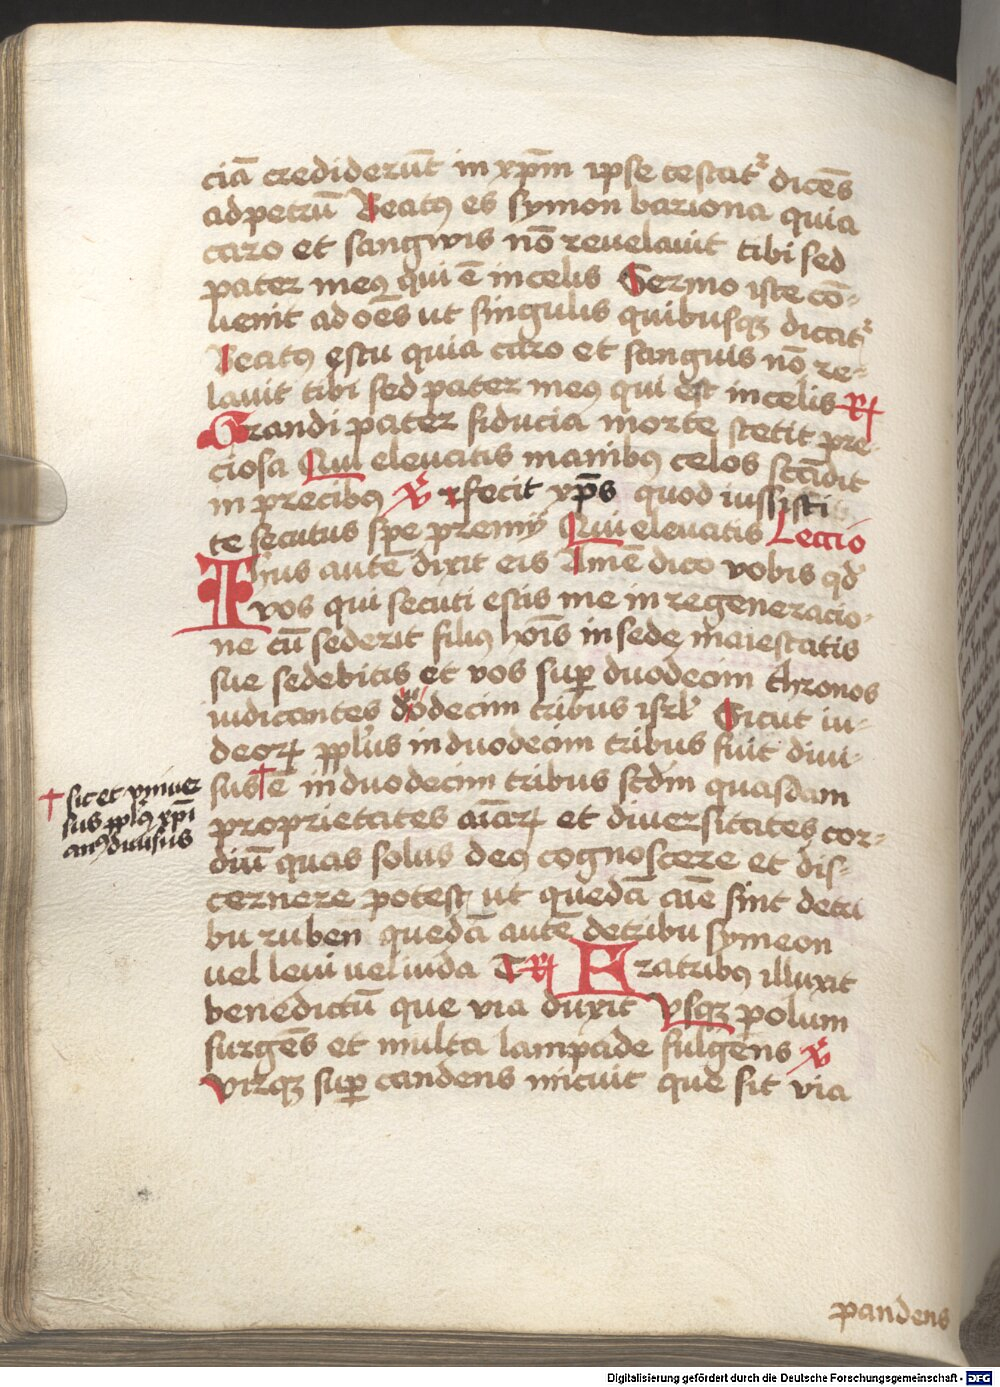 ciā crediderūt in xp̄m ipse testatᷣ dicēs
ad petrū Beatꝰ es symon bariona quia
caro et sangwis nō reuelauit tibi sed
pater meꝰ qui ē in celis Sermo iste cō-
uenit ad oēs ut singulis quibusqꝫ dicatᷣ
Beatꝰ es tu quia caro et sanguis nō re-
lauit tibi sed pater meꝰ qui est in celis R̷
Grandi pater fiducia morte stetit pre-
ciosa Qui eleuatis manibꝰ celos scādit
in precibꝰ V̷ fecit xp̄s quod iussisti
te secutus spe premij Qui eleuatis Leccio
Ihus autē dixit eis Amē dico vobis qd̓
vos qui secuti estis me in regeneracio-
ne cū sederit filiꝰ hoīs in sede maiestatis
sue sedebitis et vos suꝑ duodecim thronos
iudicantes dodecim tribus isrl̓ Sicut iu-
deoꝝ pplus in duodecim tribus fuit diui-
sus † ē in duodecim tribus scdm quasdam
proprietates aīaꝝ et diuersitates cor-
diū quas solus deꝰ cognoscere et dis-
cernere potest ut quedā aīe sint de tri
bu ruben quedā autē de tribu symeon
vel leui uel iuda T R̷ Fratribꝰ illuxit
benedictū que via duxit Vsqꝫ polum
surgēs et multa lampade fulgens V̷
Virqꝫ suꝑ candens nituit que sit via
† sic et vniuer
sus pplꝰ xp̄i
anꝰ diuisus
pandens
Digitalisierung gefördert durch die Deutsche Forschungsgemeinschaft - DFG